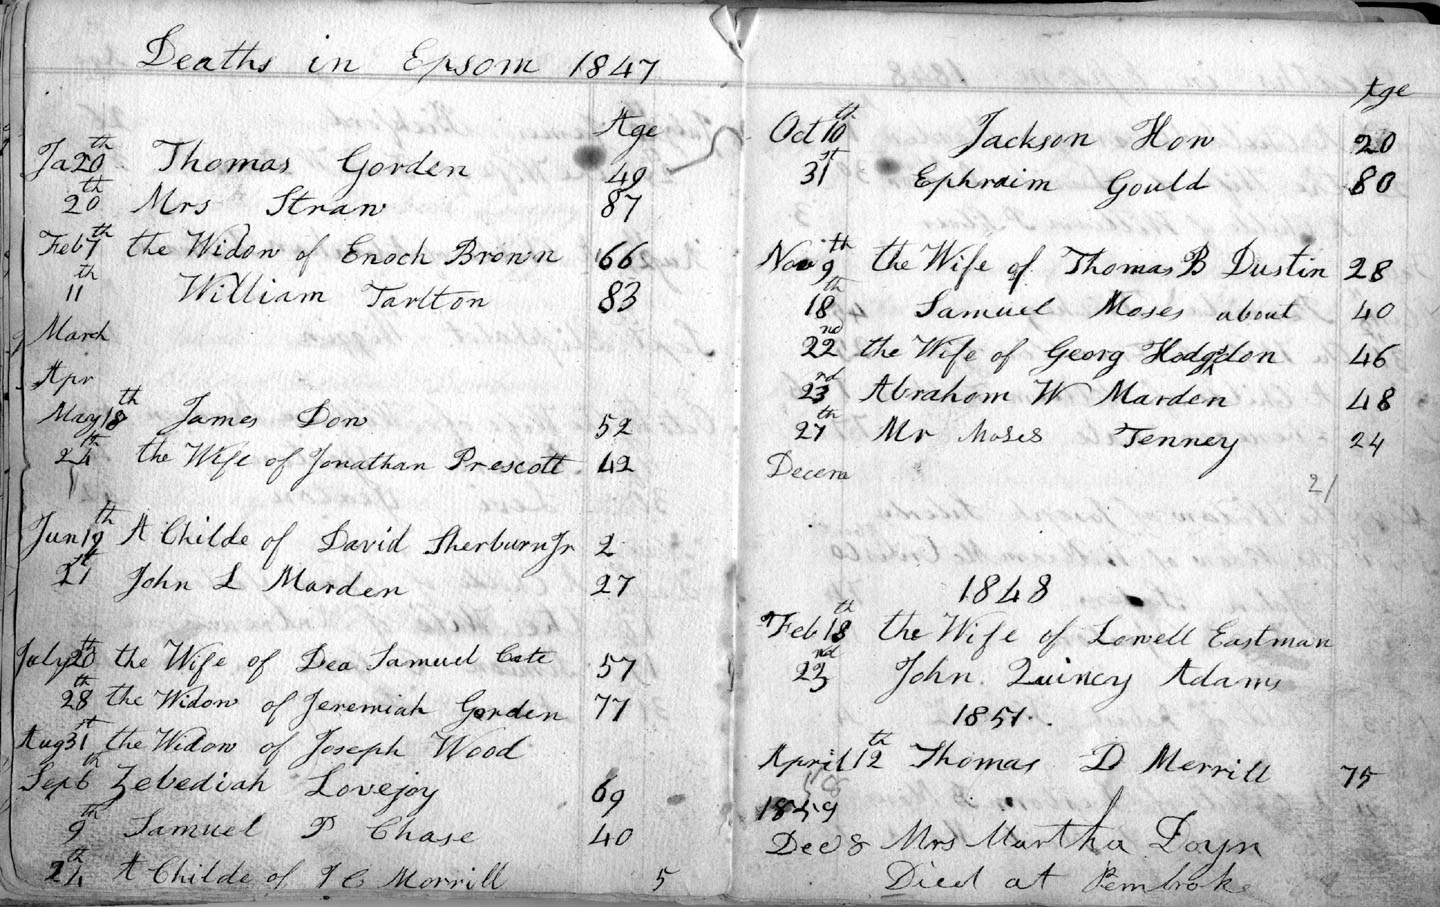 Deaths in Epsom 1847
Age
Ja 20th Thomas Gorden 49
20th Mrs Straw 87
Feb 7th the Widow of Enoch Brown 66
11th William Tarlton 83
March
Apr
May 18th James Dow 52
24th the Wife of Jonathan Prescott 42
Jun 19th A Childe of David Sherburn Jr 2
21st John L Marden 27
July 20th the Wife of Dea Samuel Cate 57
28th the Widow of Jeremiah Gorden 77
Aug 31st the Widow of Joseph Wood
Sep 6th Zebediah Lovejoy 69
9th Samuel P Chase 40
24th A Childe of J C Morrill 5
Age
Oct 10th Jackson How 20
31st Ephraim Gould 80
Nov 9th the Wife of Thomas B Dustin 28
18th Samuel Moses about 40
22nd the Wife of Georg Hodgdon 46
23rd Abrahom W Marden 48
27th Mr Moses Tenney 24
Decem
21
1848
Feb 18th the Wife of Lowell Eastman
23nd John Quincy Adams
1851.
April 12th Thomas D Merrill 75
1849
Dec 8 Mrs Martha Doyn
Died at Pembroke